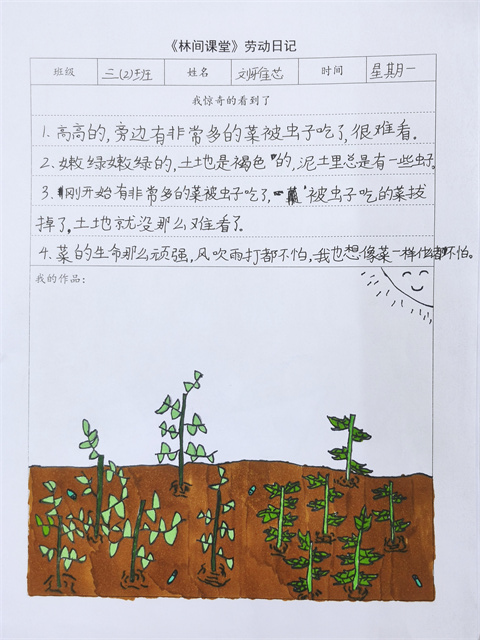 《林间课堂》劳动日记
班级 三(2)班 姓名 刘雅芯 时间 星期一
我惊奇的看到了
1.高高的,旁边有非常多的菜被虫子吃了,很难看.
2.嫩绿嫩绿的,土地是褐色的,泥土里总是有一些虫子.
3.刚开始有非常多的菜被虫子吃了,被虫子吃的菜拔
掉了,土地就没那么难看了.
4.菜的生命那么顽强,风吹雨打都不怕,我也想像菜一样什么都不怕。
我的作品: